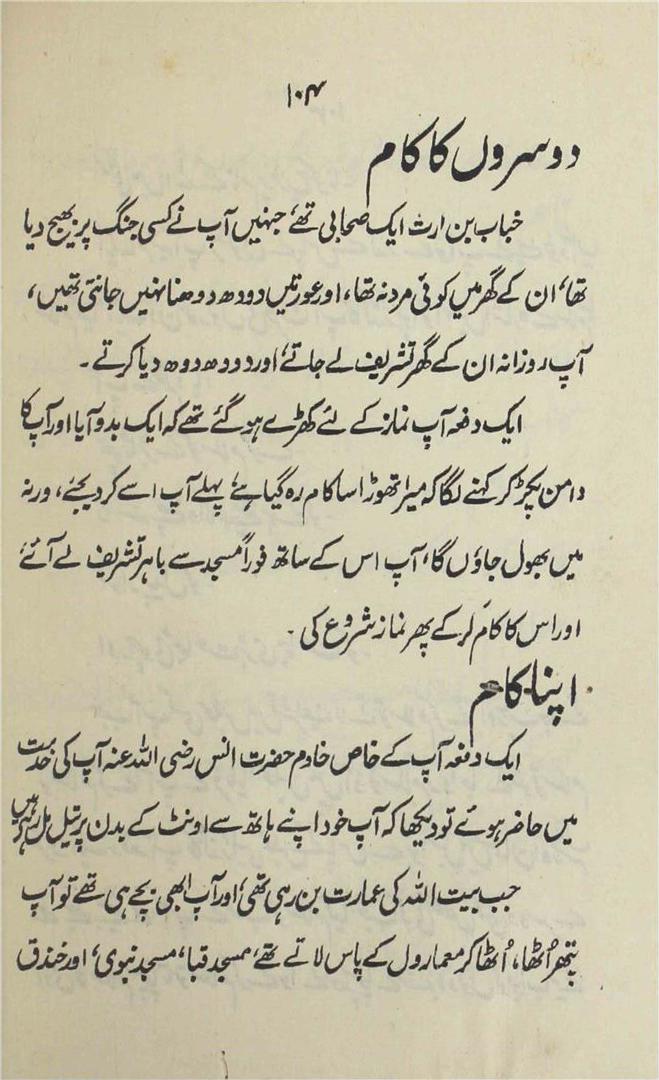 ۱۰۴
دوسروں کا کام
خباب بن ارت ایک صحابی تھے جنہیں آپ نے کسی جنگ پر بھیج دیا
تھا، ان کے گھر میں کوئی مرد نہ تھا، اور عورتیں دودھ دوھنا نہیں جانتی تھیں،
آپ روزانہ ان کے گھر تشریف لے جاتے، اور دودھ دوھ دیا کرتے ۔
ایک دفعہ آپ نماز کے لئے کھڑے ہو گئے تھے کہ ایک بدو آیا اور آپ کا
دامن پکڑ کر کہنے لگا کہ میرا تھوڑا سا کام رہ گیا ہے، پہلے آپ اسے کر دیجئے، ورنہ
میں بھول جاؤں گا، آپ اس کے ساتھ فوراً مسجد سے باہر تشریف لے آئے
اور اس کا کام کر کے پھر نماز شروع کی ۔
اپنا کام
ایک دفعہ آپ کے خاص خادم حضرت انس رضی اللہ عنہ آپ کی خدمت
میں حاضر ہوئے تو دیکھا کہ آپ خود اپنے ہاتھ سے اونٹ کے بدن پر تیل مل رہے ہیں
جب بیت اللہ کی عمارت بن رہی تھی، اور آپ ابھی بچے ہی تھے تو آپ
پتھر اُٹھا، اُٹھا کر معماروں کے پاس لاتے تھے، مسجد قبا، مسجد نبوی، اور خندق